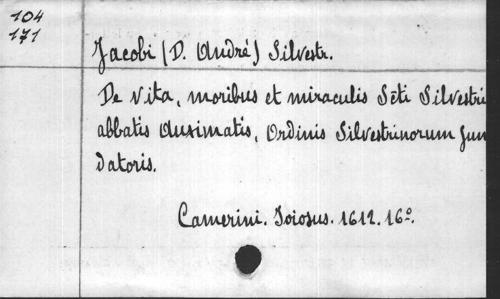 104
171
Jacobi (D. André) Silvestr.
De vita, moribus et miraculis Scti Silvestri
abbatis Auximatis, Ordinis Silvestrinorum fun
datoris.
Camerini. Joiosus. 1612. 16º.